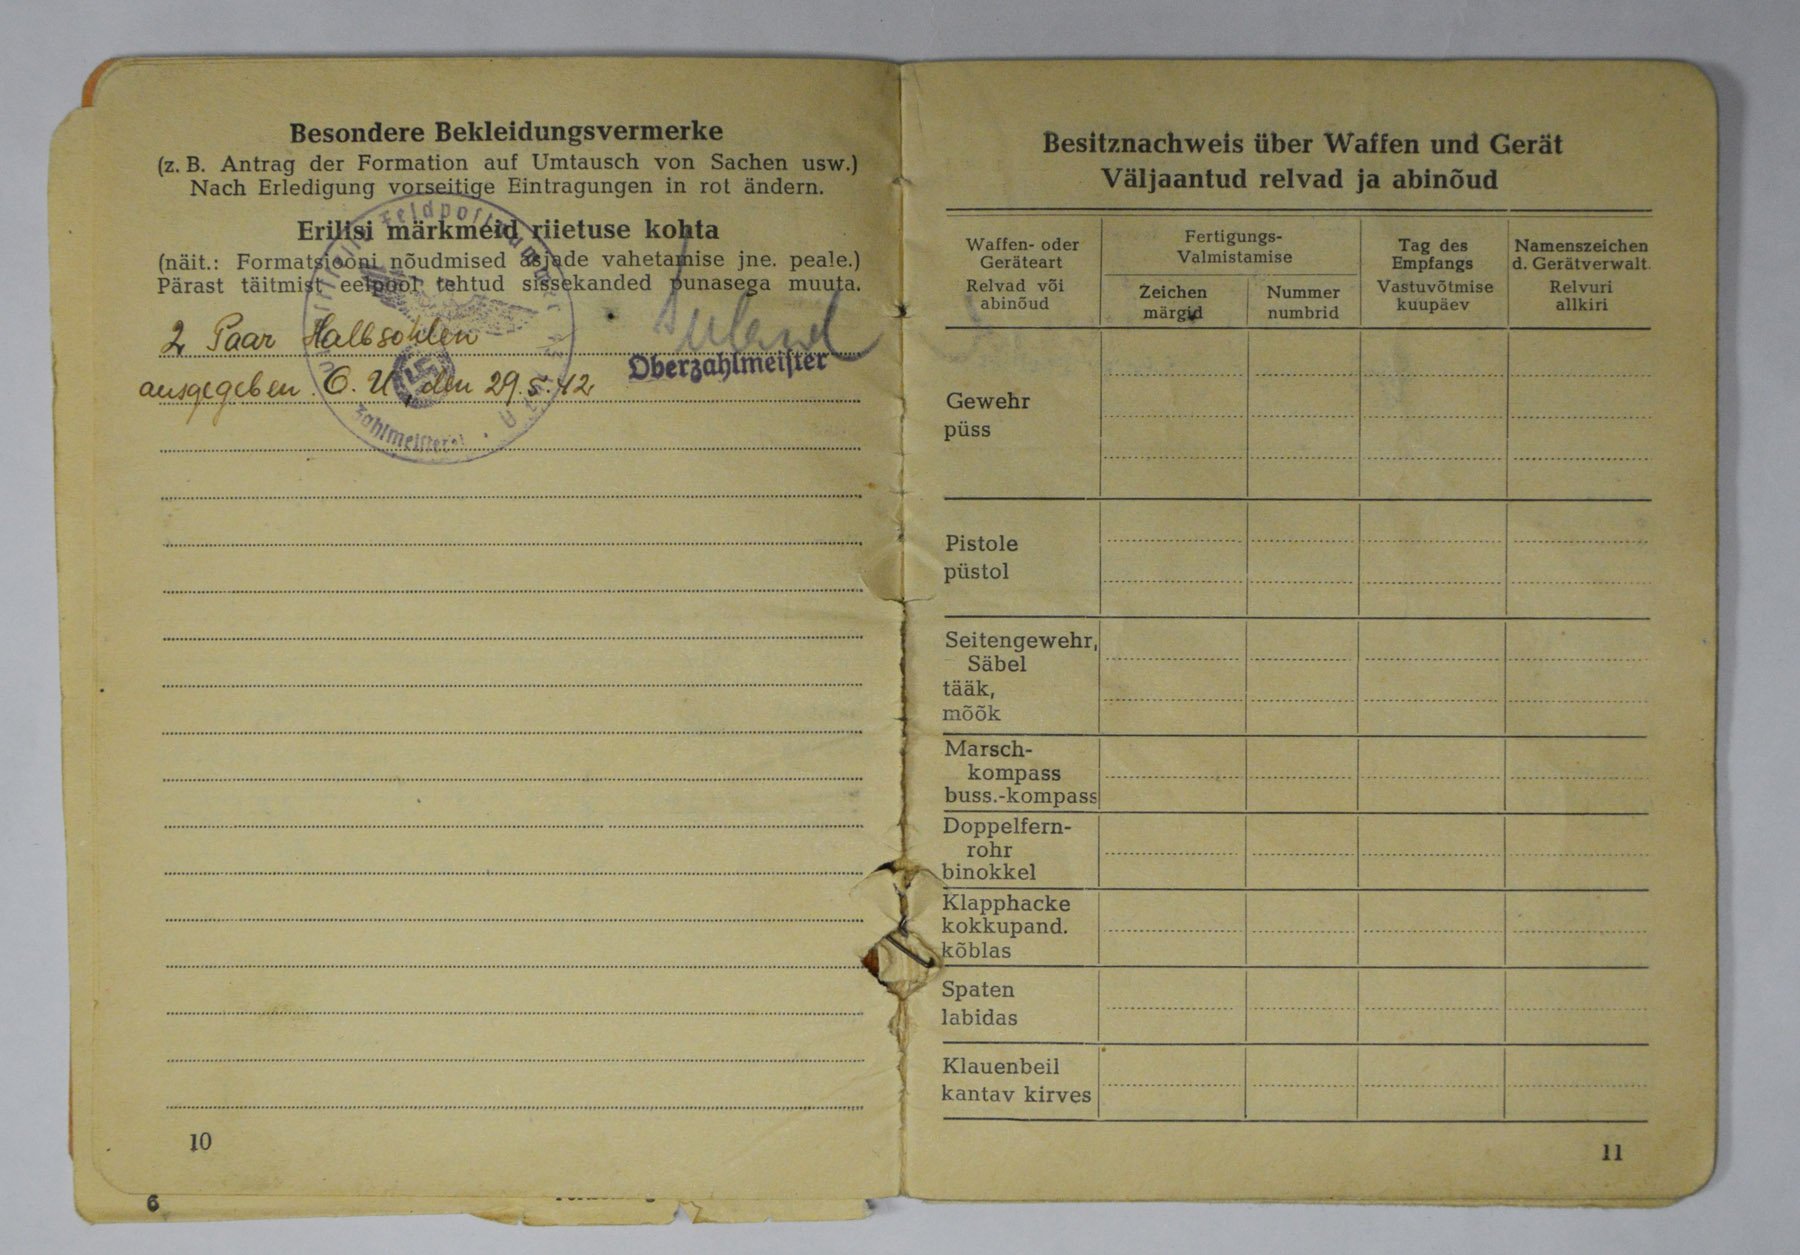 Besondere Bekleidungsvermerke
(z. B. Antrag der Formation auf Umtausch von Sachen usw.)
Nach Erledigung vorseitige Eintragungen in rot ändern.
Erilisi märkmeid riietuse kohta
(näit.: Formatsiooni nõudmised asjade vahetamise jne. peale.)
Pärast täitmist eelpool tehtud sissekanded punasega muuta.
2 Paar Halbsohlen
ausgegeben. O. U., den 29.5.42
Oberzahlmeister
Feldpostnummer
Zahlmeisterei
10
6
Besitznachweis über Waffen und Gerät
Väljaantud relvad ja abinõud
Waffen- oder Geräteart
Relvad või abinõud
Fertigungs-
Valmistamise
Zeichen
märgid
Nummer
numbrid
Tag des Empfangs
Vastuvõtmise kuupäev
Namenszeichen d. Gerätverwalt.
Relvuri allkiri
Gewehr
püss
Pistole
püstol
Seitengewehr,
Säbel
tääk,
mõõk
Marsch-
kompass
buss.-kompass
Doppelfern-
rohr
binokkel
Klapphacke
kokkupand.
kõblas
Spaten
labidas
Klauenbeil
kantav kirves
11